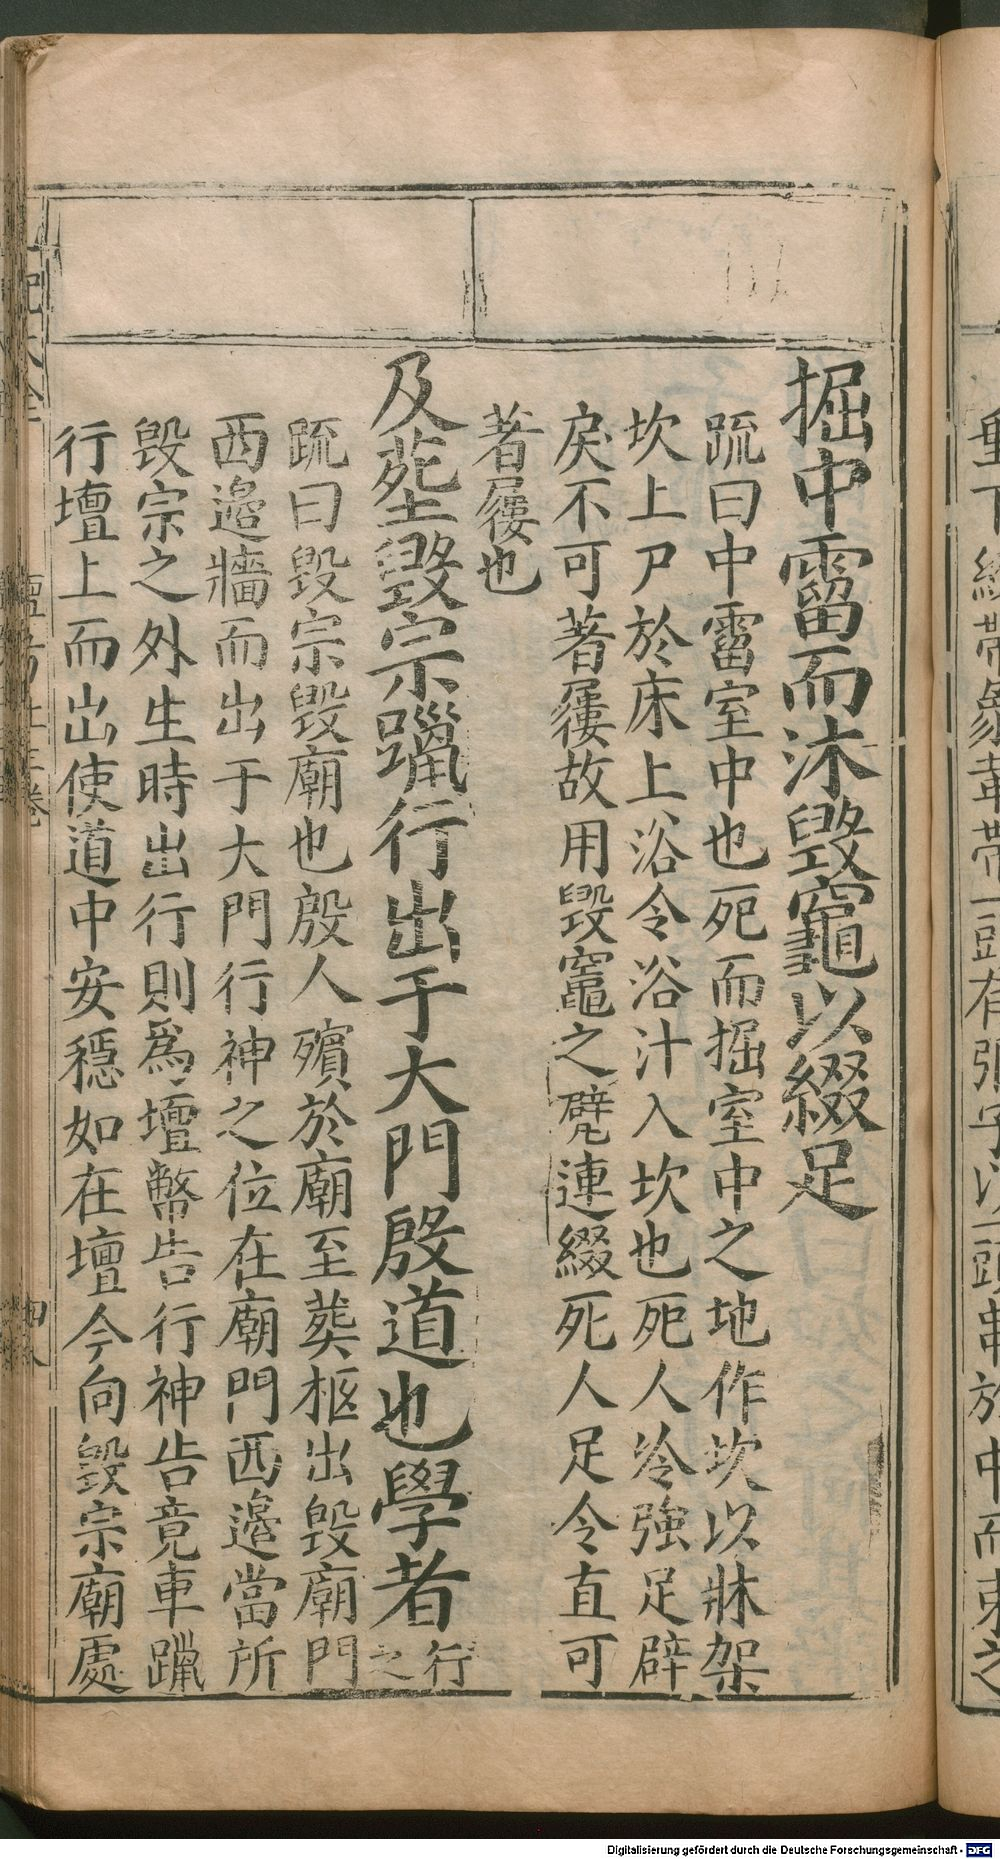 掘中霤而沐毀竈以綴足
䟽曰中霤室中也死而掘室中之地作坎以牀架
坎上尸於床上浴令浴汁入坎也死人冷強足辟
戾不可著屨故用毀竈之甓連綴死人足令直可
著屨也
及塟毀宗躐行出于大門殷道也學者行之
䟽曰毀宗毀廟也殷人殯於廟至葬柩出毀廟門
西邉牆而出于大門行神之位在廟門西邉當所
毀宗之外生時出行則爲壇幣告行神告竟車躐
行壇上而出使道中安穩如在壇今向毀宗廟處
Digitalisierung gefördert durch die Deutsche Forschungsgemeinschaft - DFG